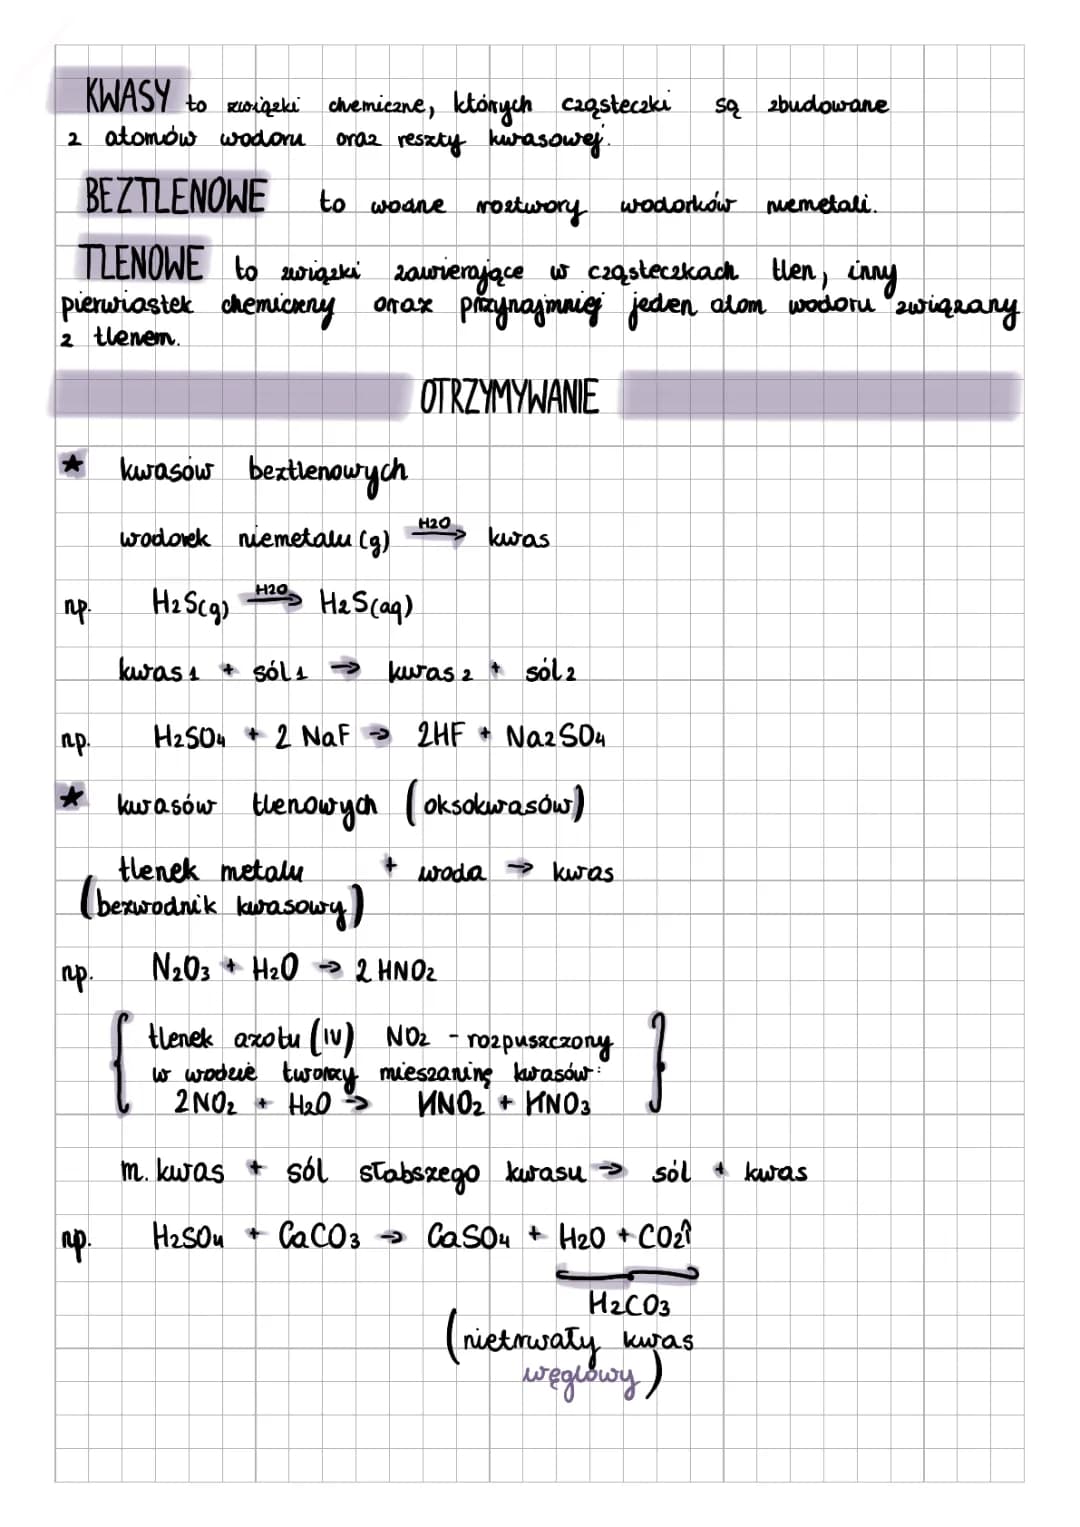 KWASY to związki chemiczne, których cząsteczki są zbudowane
z atomów wodoru oraz reszty kwasowej.
BEZTLENOWE to wodne roztwory wodorków niemetali.
TLENOWE to związki zawierające w cząsteczkach tlen, inny
pierwiastek chemiczny oraz przynajmniej jeden atom wodoru związany
z tlenem.
OTRZYMYWANIE
★ kwasów beztlenowych
wodorek niemetalu (g) —H2O→ kwas
np. H2S(g) —H2O→ H2S(aq)
kwas 1 + sól 1 → kwas 2 + sól 2
np. H2SO4 + 2 NaF → 2HF + Na2SO4
★ kwasów tlenowych (oksokwasów)
tlenek metalu + woda → kwas
(bezwodnik kwasowy)
np. N2O3 + H2O → 2 HNO2
{ tlenek azotu (IV) NO2 - rozpuszczony }
w wodzie tworzy mieszaninę kwasów:
2NO2 + H2O → HNO2 + HNO3
m. kwas + sól słabszego kwasu → sól + kwas
np. H2SO4 + CaCO3 → CaSO4 + H2O + CO2↑
H2CO3
(nietrwały kwas
węglowy)